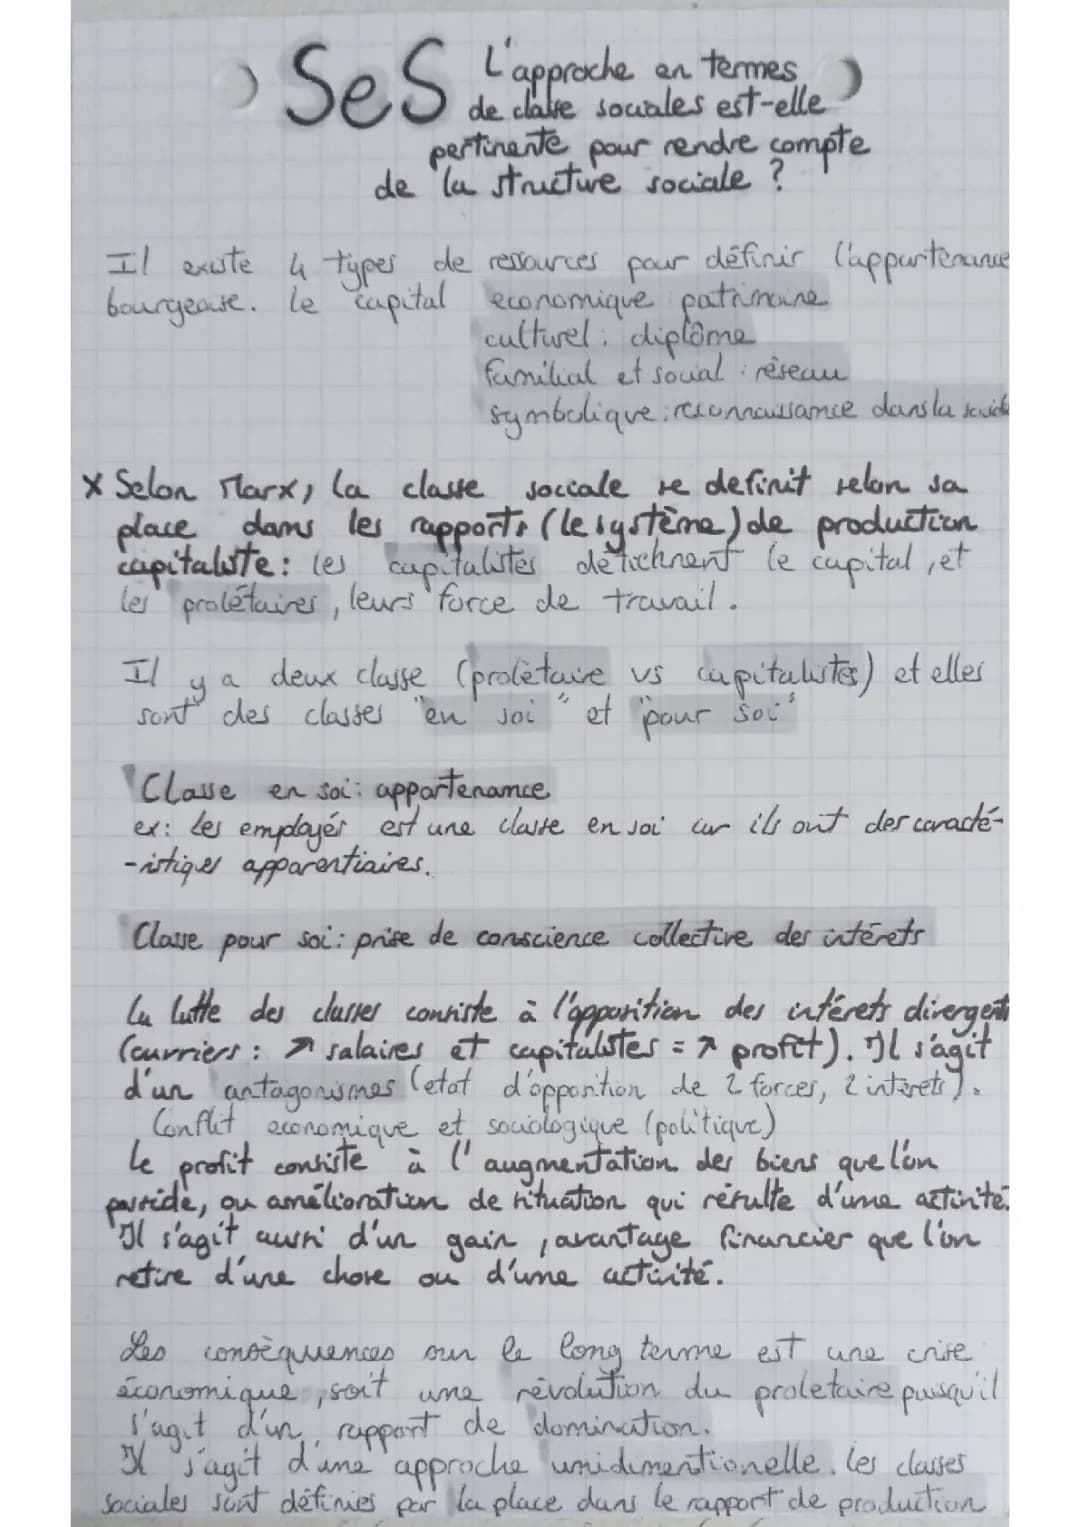 SeS L'approche en termes
de classe sociales est-elle
pertinente pour rendre compte
de la structure sociale ?
Il existe 4 types de ressources pour définir l'appartenance
bourgeoise. Le capital economique patrimoine
culturel : diplôme
familial et social : réseau
symbolique : reconnaissance dans la société
X Selon Marx, la classe sociale se definit selon sa
place dans les rapports (le système) de production
capitaliste : les capitalistes détiennent le capital, et
les prolétaires, leurs force de travail.
Il y a deux classe (prolétaire vs capitalistes) et elles
sont des classes "en soi" et "pour soi"
Classe en soi : appartenance
ex : Les employés est une classe en soi car ils ont des caracté-
-istiques apparentiaires.
Classe pour soi : prise de conscience collective des intérets
La lutte des classes consiste à l'opposition des intérets divergents
(ourriers : ↗ salaires et capitalistes = ↗ profit). Il s'agit
d'un antagonismes (etat d'opposition de 2 forces, 2 intérets).
Conflit economique et sociologique (politique)
Le profit consiste à l'augmentation des biens que l'on
possède, ou amélioration de situation qui résulte d'une activité.
Il s'agit aussi d'un gain, avantage financier que l'on
retire d'une chose ou d'une activité.
Les conséquences sur le long terme est une crise
économique, soit une révolution du proletaire puisqu'il
s'agit d'un rapport de domination.
Il s'agit d'une approche unidimentionelle. Les classes
sociales sont définies par la place dans le rapport de production